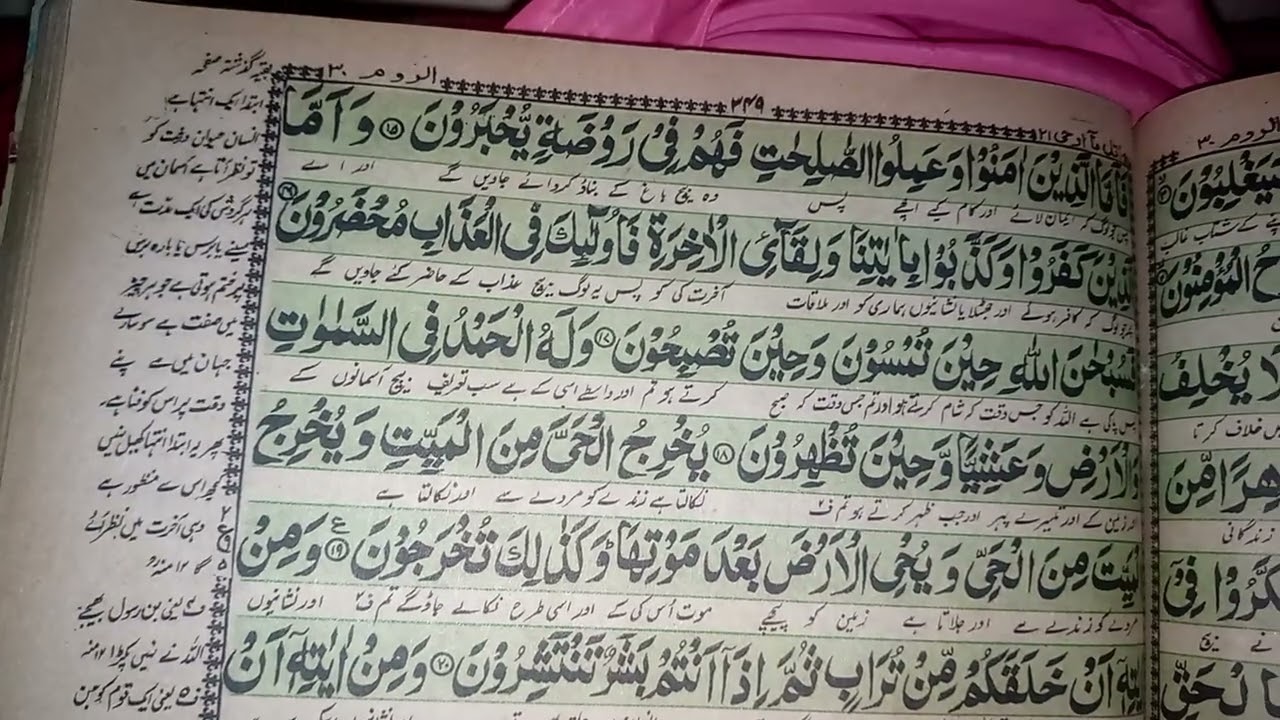 الروم ٣٠
٣٤٩
اتل ما اوحی ٢١
فَاَمَّا الَّذِیْنَ اٰمَنُوْا وَعَمِلُوا الصّٰلِحٰتِ فَهُمْ فِیْ رَوْضَةٍ یُّحْبَرُوْنَ ۝۱۵ وَاَمَّا
پس جو لوگ کہ ایمان لائے اور کام کیے اچھے پس وہ بیچ باغ کے بناؤ کروائے جاویں گے اور اے
الَّذِیْنَ كَفَرُوْا وَكَذَّبُوْا بِاٰیٰتِنَا وَلِقَآئِ الْاٰخِرَةِ فَاُولٰٓئِكَ فِی الْعَذَابِ مُحْضَرُوْنَ ۝۱۶
جو لوگ کہ کافر ہوئے اور جھٹلایا نشانیوں ہماری کو اور ملاقات آخرت کی کو پس یہ لوگ بیچ عذاب کے حاضر کئے جاویں گے
فَسُبْحٰنَ اللّٰهِ حِیْنَ تُمْسُوْنَ وَحِیْنَ تُصْبِحُوْنَ ۝۱۷ وَلَهُ الْحَمْدُ فِی السَّمٰوٰتِ
پس پاکی ہے اللہ کو جس وقت کہ شام کرتے ہو اور تم جس وقت کہ صبح کرتے ہو تم اور واسطے اسی کے ہے سب تعریف بیچ آسمانوں کے
وَالْاَرْضِ وَعَشِیًّا وَّحِیْنَ تُظْهِرُوْنَ ۝۱۸ یُخْرِجُ الْحَیَّ مِنَ الْمَیِّتِ وَیُخْرِجُ
اور زمین کے اور تیسرے پہر اور جب ظہر کرتے ہو تم ف نکالتا ہے زندے کو مردے سے اور نکالتا ہے
الْمَیِّتَ مِنَ الْحَیِّ وَیُحْیِ الْاَرْضَ بَعْدَ مَوْتِهَا وَكَذٰلِكَ تُخْرَجُوْنَ ۝۱۹ ع وَمِنْ
مردے کو زندے سے اور جلاتا ہے زمین کو پیچھے موت اس کی کے اور اسی طرح نکالے جاؤ گے تم ف۲ اور نشانیوں
اٰیٰتِهٖ اَنْ خَلَقَكُمْ مِّنْ تُرَابٍ ثُمَّ اِذَاۤ اَنْتُمْ بَشَرٌ تَنْتَشِرُوْنَ ۝۲۰ وَمِنْ اٰیٰتِهٖۤ اَنْ
بقیہ گذشتہ صفحہ
ابتدا ایک انتہا ہے
انسان حیوان درخت کو
تو نظر آتا ہے آسمان میں
ہر گردش کی ایک مدت ہے
مہینے یا برس یا بارہ برس
پھر ختم ہوتی ہے جو ہر چیز
میں صفت ہے سو سارے
جہان میں ہے اپنے
وقت پر اس کو فنا ہے
پھر یہ ابتدا انتہا کھیل نہیں
کچھ اس سے منظور ہے
وہی آخرت میں نظر آئے
گا ۱۲ منہ رح
ف۴ یعنی بن رسول بھیجے
اللہ نے نہیں پکڑا ۱۲ منہ
ف۵ یعنی ایک قوم کو جن
الروم ٣٠
سَیَغْلِبُوْنَ
الْمُؤْمِنُوْنَ
لَا یُخْلِفُ
خلاف کرتا
ظَاهِرًا مِّنَ
زندگانی
یَتَفَكَّرُوْا فِیْۤ
نے بیچ